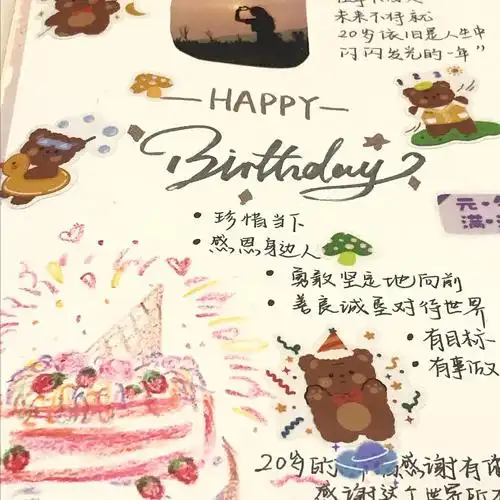 未来不将就
20岁依旧是人生中
闪闪发光的一年”
123
—HAPPY—
Birthday
• 珍惜当下
• 感恩身边人
• 勇敢坚定地向前
• 善良诚恳对待世界
• 有目标
• 有事做
20岁的
感谢有
感谢这个世界所